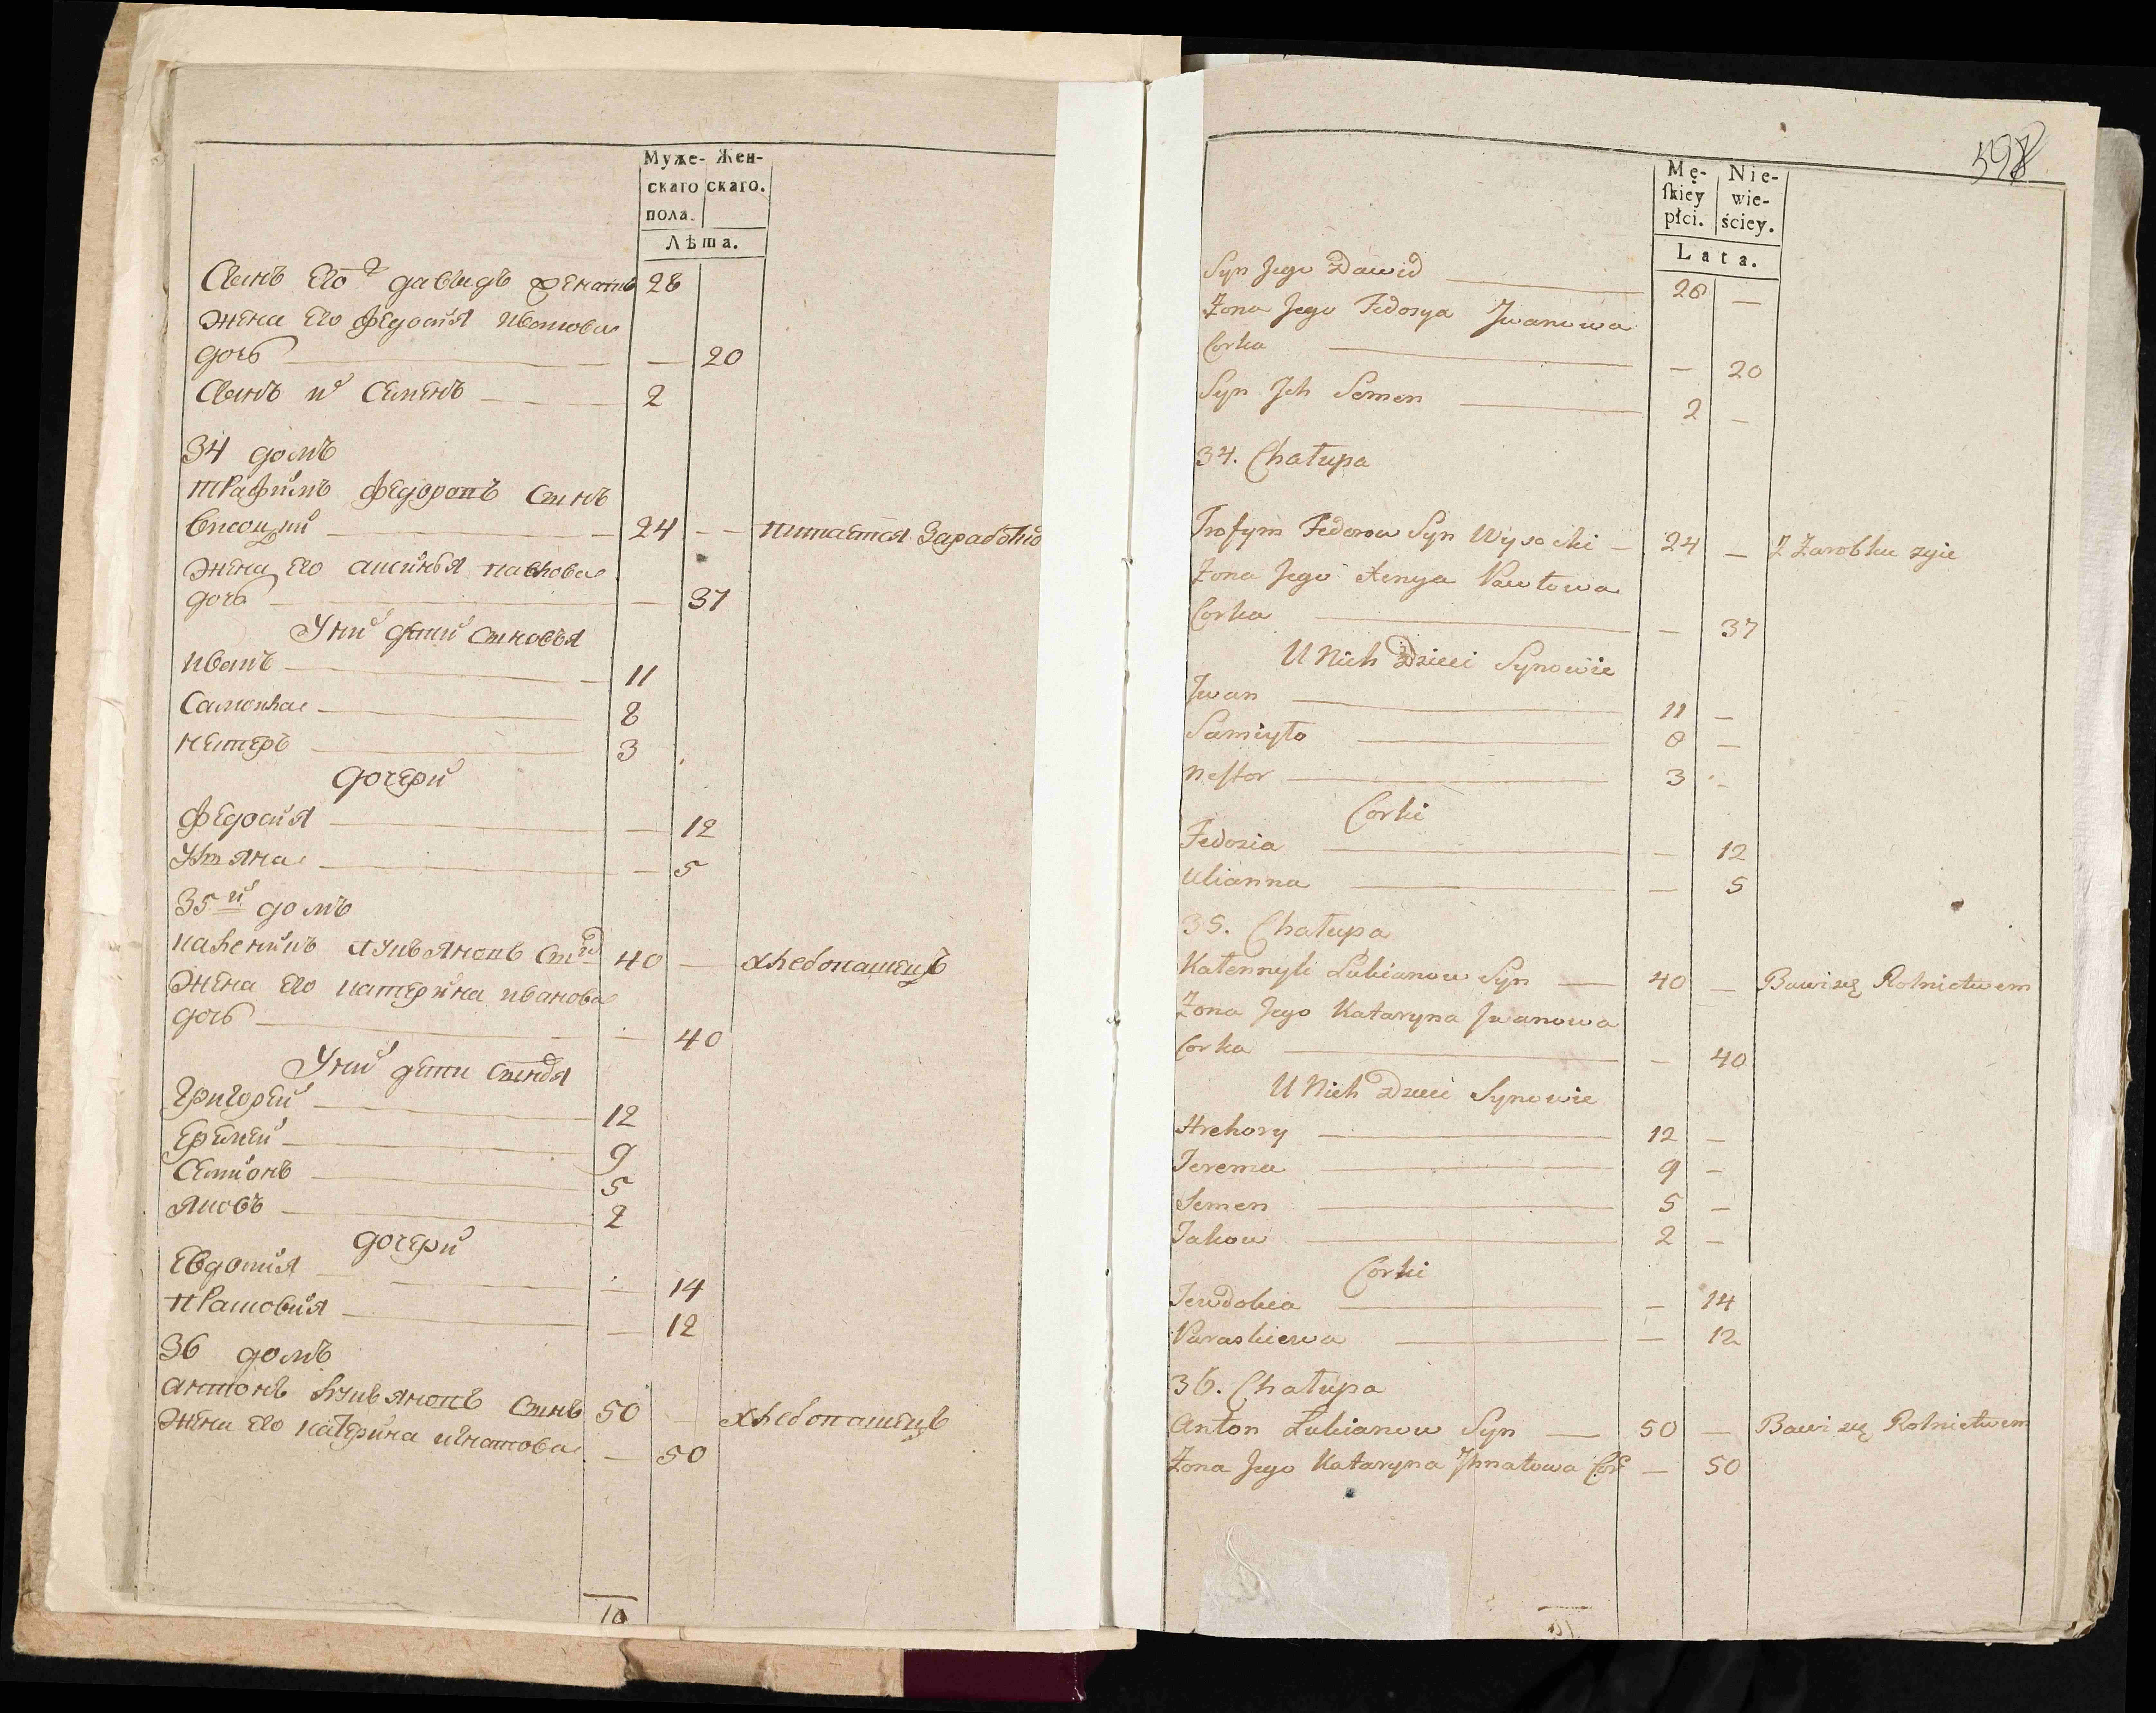 Муже- Жен-
скаго скаго.
пола.
Лѣта.
Сынъ его давыдъ 28
жена его федосия иванова
дочь — 20
Сынъ и Семенъ 2
34 домъ
трафимъ федоровъ Сынъ
висоцкий 24 — питается Заработко
жена его аксинья павлова
дочь — 37
У ни дети Сыновья
иванъ 11
Самоила 8
нестеръ 3
дочери
федосия — 12
Уляна — 5
35й домъ
каленикъ лукьяновъ Сынъ 40 — хлебопашецъ
жена его катерина иванова
дочь — 40
У ни дети Сыновя
Григорей 12
Еремей 9
Семионъ 5
яковъ 2
дочери
Евдокия — 14
прасковия — 12
36 домъ
антонъ лукьяновъ Сынъ 50 — хлебопашецъ
жена его катерина игнатова — 50
10
598
Mę- Nie-
ſkiey wie-
płci. ściey.
Lata.
Syn Jego Dawid 28 —
Żona Jego Fedosya Jwanowa
Corka — 20
Syn Jch Semen 2 —
34. Chałupa
Trofym Fedorow Syn Wysocki — 24 — Z Zarobku zyie
Żona Jego Xenya Pawłowa
Corka — 37
U Nich Dzieci Synowie
Jwan 11 —
Samiyło 8 —
Neſtor 3 -
Corki
Fedosia — 12
Ulianna — 5
35. Chałupa
Kalennyk Łukianow Syn — 40 — Bawi się Rolnictwem
Żona Jego Kataryna Jwanowa
Corka — 40
U Nich Dzieci Synowie
Hrehory 12 —
Jerema 9 —
Semen 5 —
Jakow 2 —
Corki
Jewdokia — 14
Paraskiewa — 12
36. Chałupa
Anton Łukianow Syn — 50 — Bawi się Rolnictwem
Żona Jego Kataryna Jhnatowa Cor — 50